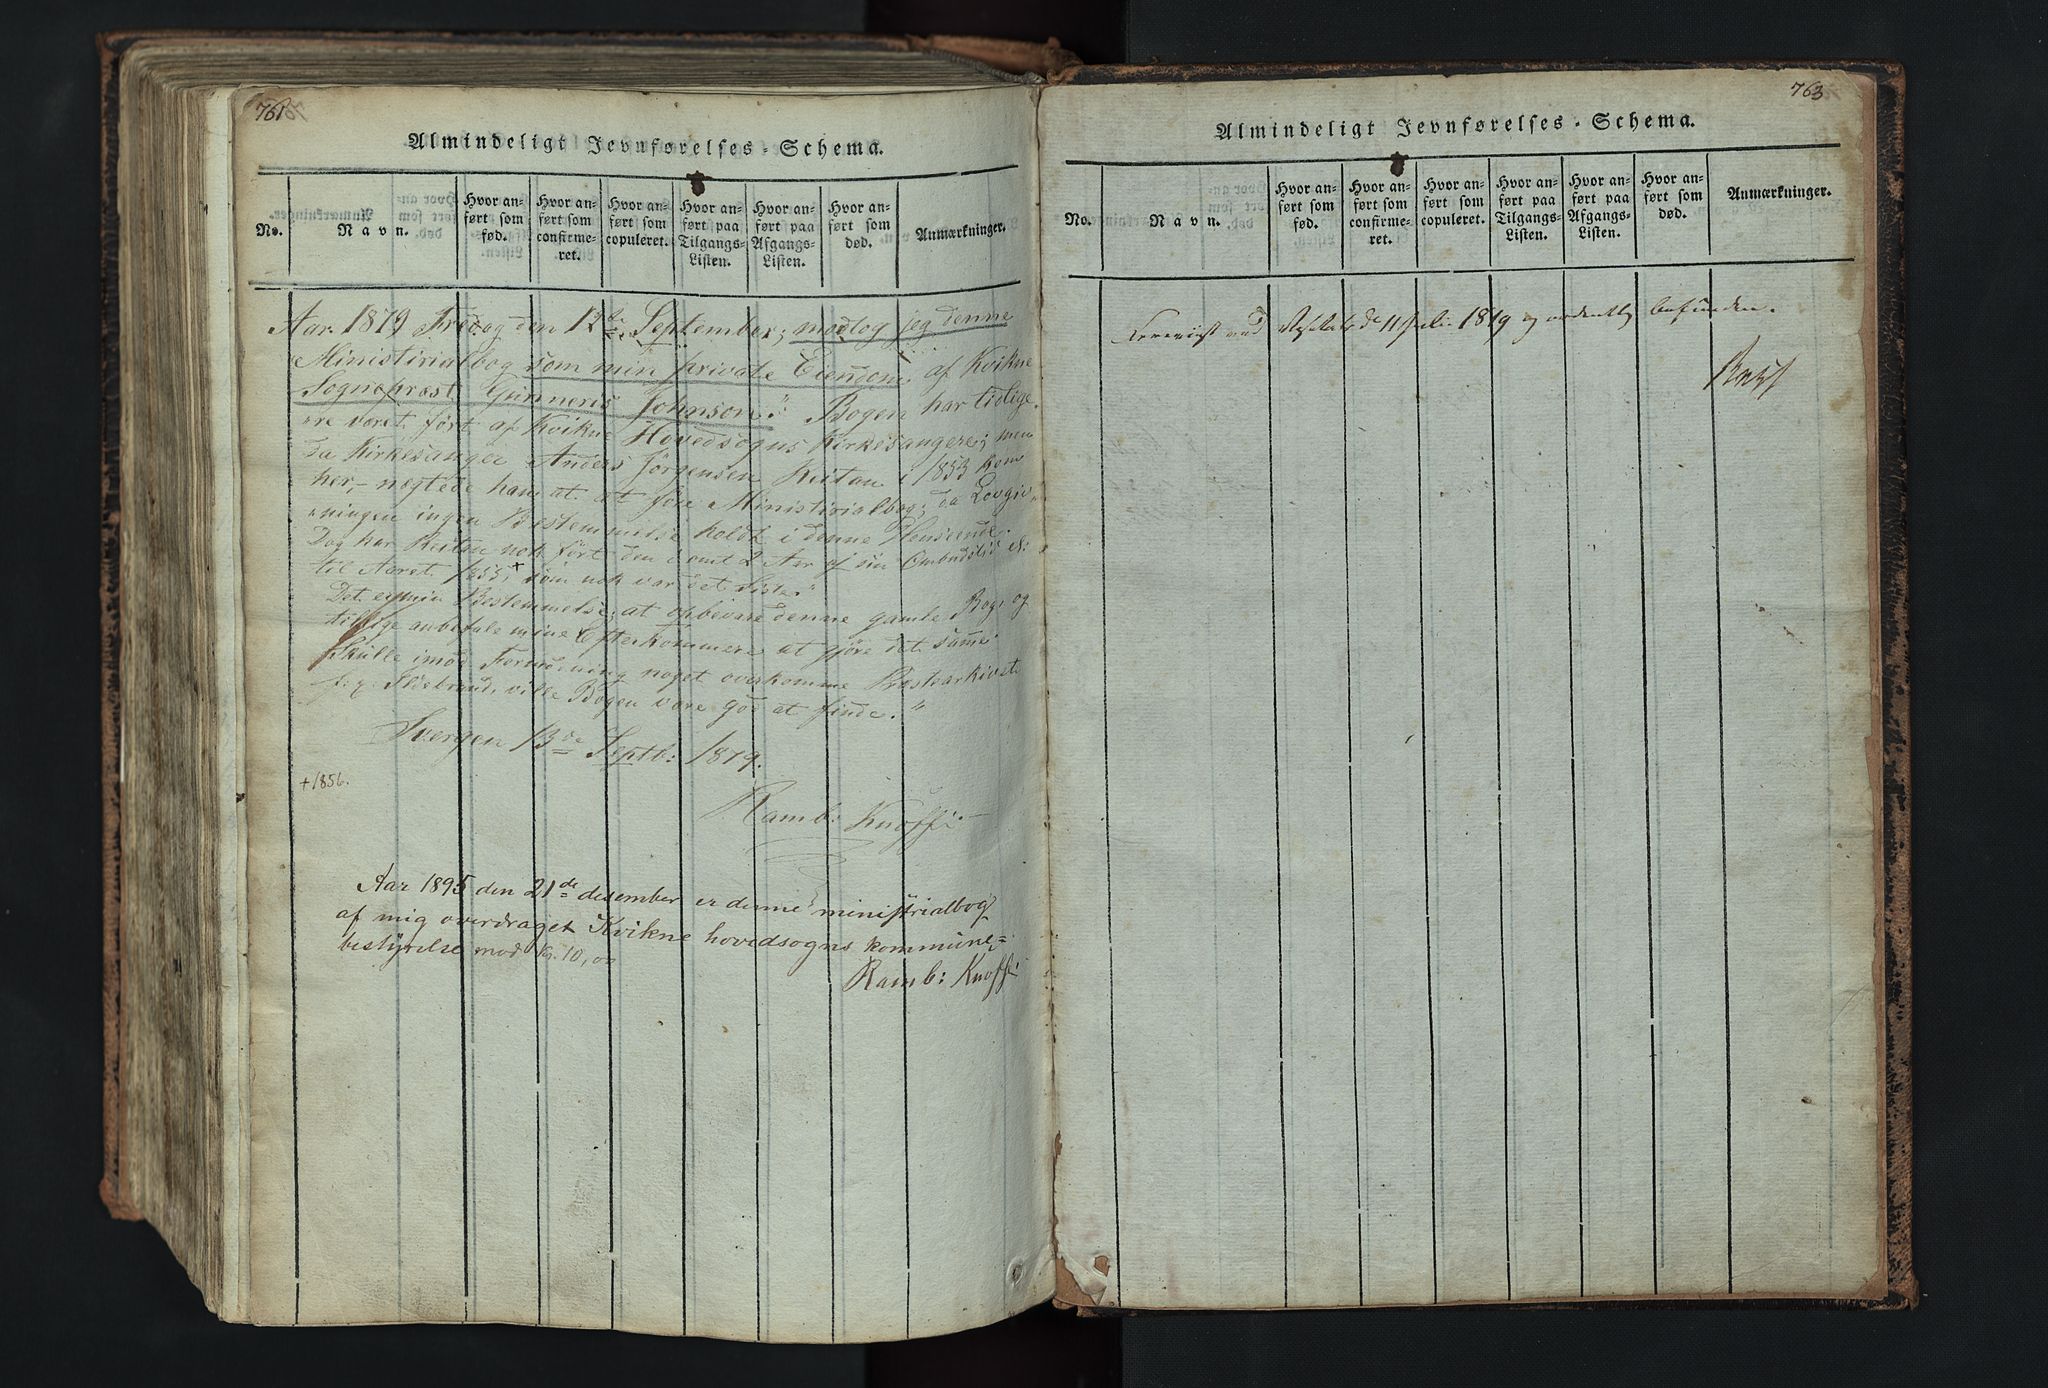 761
Almindeligt Jevnførelses-Schema.
No.
Navn.
Hvor anført som fød.
Hvor anført som confirmeret.
Hvor anført som copuleret.
Hvor anført paa Tilgangs-Listen.
Hvor anført paa Afgangs-Listen.
Hvor anført som død.
Anmærkninger.
Aar 1879 Fredag den 12te September; modtog jeg denne
Ministirialbog som min private Eiendom af Kvikne
Sogneprest Gunnerus Johnson." Bogen har tidlige-
re været ført af Kvikne Hovedsogns Kirkesangere; men
da Kirkesanger Anders Jørgensen Reitan i 1853 kom
her, negtede ham at at føre Ministirialbog; da Lovgiv-
ningen ingen Bestemmelse holdt i denne Henseende.
Dog har Reitan nok ført den i omt 2 Aar af sin Ombudstid
til Aaret 1855,+ som nok var det Siste."
Det er min Bestemmelse, at opbevare denne gamle Bog, og
tillige anbefale mine Efterkommere at gjøre det samme.
Skulle imod Formodning noget overkomme Prestearkivet
f. x. Ildebrand, ville Bogen være god at finde."
Svergen 13de Septb: 1879.
+1856.
Ramb: Knoff
Aar 1895 den 21de desember er denne ministrialbog
af mig overdraget Kvikne hovedsogns kommune-
bestyrelse mod Kr. 10,00
Ramb: Knoff
763
Almindeligt Jevnførelses-Schema.
No.
Navn.
Hvor anført som fød.
Hvor anført som confirmeret.
Hvor anført som copuleret.
Hvor anført paa Tilgangs-Listen.
Hvor anført paa Afgangs-Listen.
Hvor anført som død.
Anmærkninger.
ved 11 Juli 1819 og ordentlig befunden.